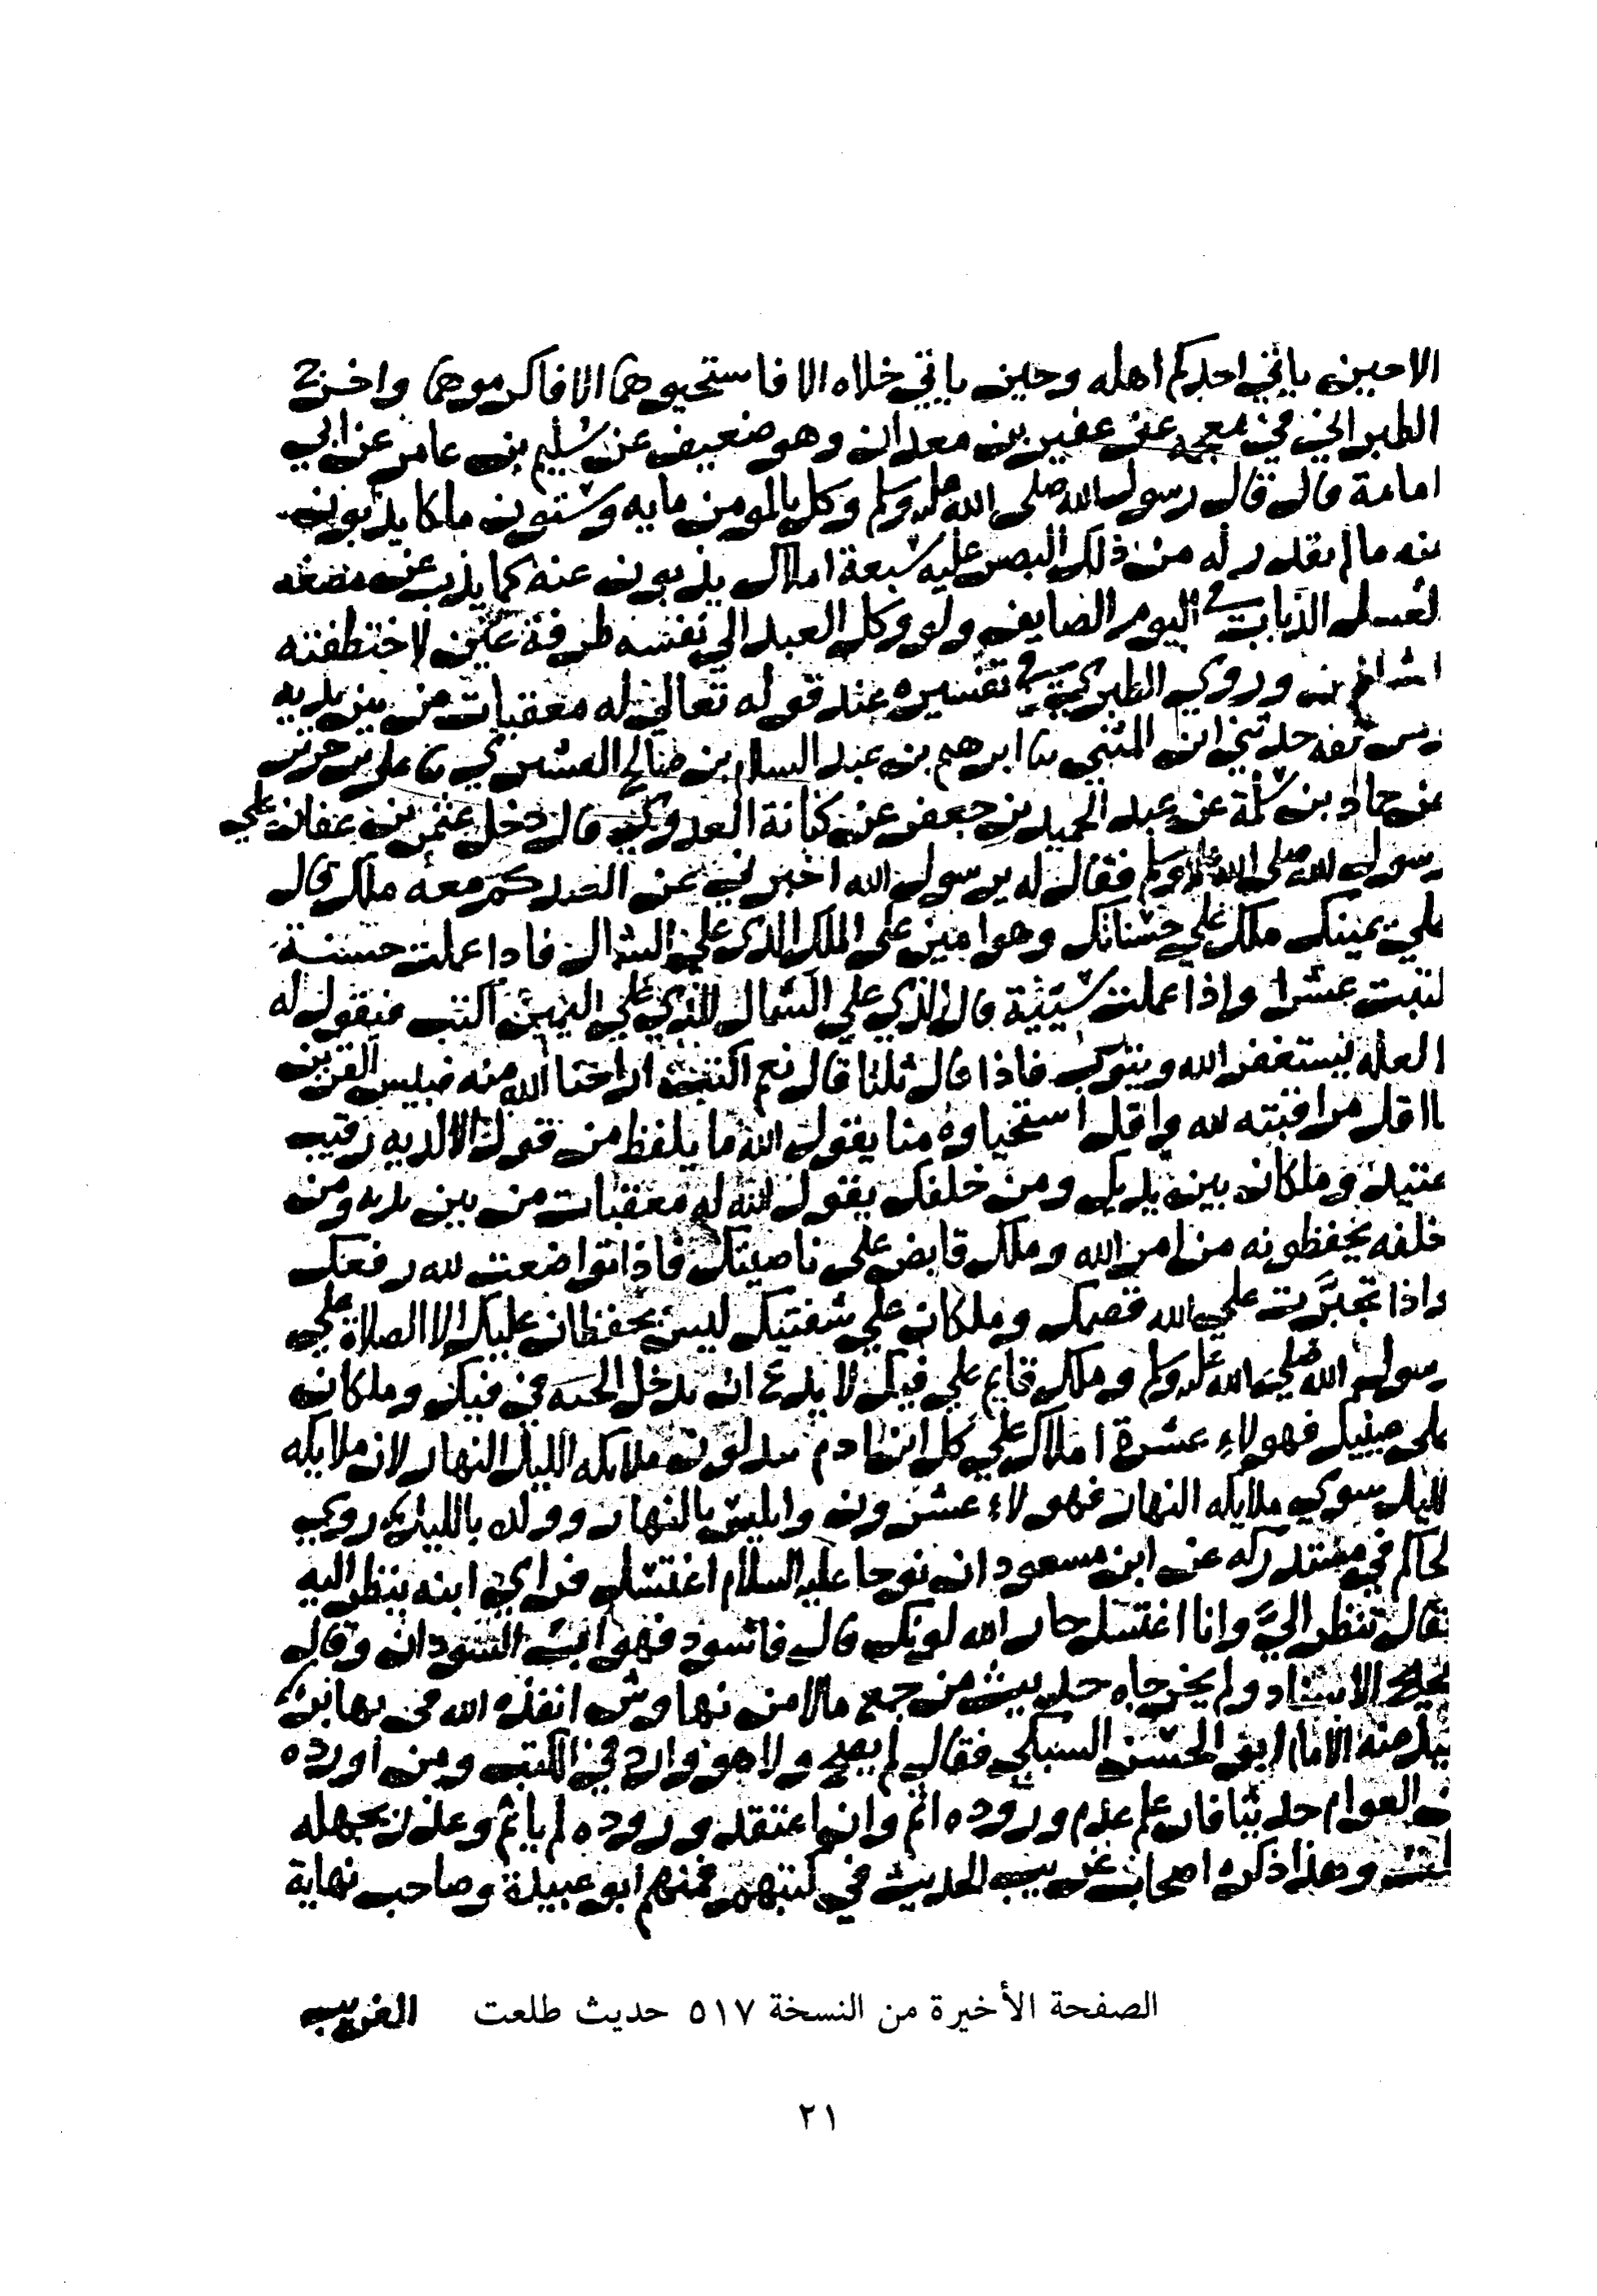 الاحين ياتي احدكم اهله وحين ياتي خلاه الا فاستحيوهما الا فاكرموهما واخرج
الطبراني في معجمه عن عفير بن معدان وهو ضعيف عن سليم بن عامر عن ابي
امامة قال قال رسول الله صلى الله عليه وسلم وكل بالمومن مايه وستون ملكا يذبون
عنه ما لم يقدر له من ذلك البصر عليه سبعة املاك يذبون عنه كما يذب عن قصعه
العسل الذباب في اليوم الصايف ولو وكل العبد الي نفسه طرفة عين لاختطفته
وروي الطبري في تفسيره عند قوله تعالي له معقبات من بين يديه
ومن خلفه حدثني ابن المثني ثنا ابرهيم بن عبد السلام بن صالح القشيري ثنا علي بن حرير
عن حماد بن سلمة عن عبد الحميد بن جعفر عن كنانة العدوي قال دخل عثمن بن عفان علي
رسول الله صلى الله عليه وسلم فقال له يرسول الله اخبرني عن العبد كم معه ملك قال
علي يمينك ملك علي حسناتك وهو امين على الملك الذي علي الشمال فاذا عملت حسنة
كتبت عشرا واذا عملت سيئة قال الذي علي الشمال للذي علي اليمين اكتب فيقول له
لعله يستغفر الله ويتوب فاذا قال ثلثا قال نعم اكتب اراحنا الله منه فبيس القرين
ما اقل مراقبته لله واقل استحياوه منا يقول الله ما يلفظ من قول الا لديه رقيب
عتيد وملكان بين يديك ومن خلفك يقول الله له معقبات من بين يديه ومن
خلفه يحفظونه من امر الله وملك قابض على ناصيتك فاذا تواضعت لله رفعك
واذا تجبرت علي الله قصمك وملكان علي شفتيك ليس يحفظان عليك الا الصلاة علي
رسول الله صلي الله عليه وسلم وملك قايم علي فيك لا يدع ان تدخل الحيه في فيك وملكان
على عينيك فهولاء عشرة املاك علي كل ابن ادم يبدلون ملايكه الليل النهار لان ملايكه
الليل سوي ملايكه النهار فهولاء عشرون وابليس بالنهار وولده بالليل روي
الحاكم في مستدركه عن ابن مسعود ان نوحا عليه السلام اغتسل فراي ابنه ينظر اليه
فقال تنظر الي وانا اغتسل حار الله لونك قال فاسود فهو ابو السودان وقال
صحيح الاسناد ولم يخرجاه حديث من جمع مالا من نهاوش انفذه الله في نهابر
سيل عنه الامام ابو الحسن السبكي فقال لم يصح ولا هو وارد في الكتب ومن اورده
من العوام حديثا فان علم عدم وروده اثم وان اعتقد وروده لم ياثم وعذر بجهله
وهذا ذكره اصحاب غريب الحديث في كتبهم فمنهم ابو عبيدة وصاحب نهاية
الغريب
الصفحة الأخيرة من النسخة ٥١٧ حديث طلعت
٢١